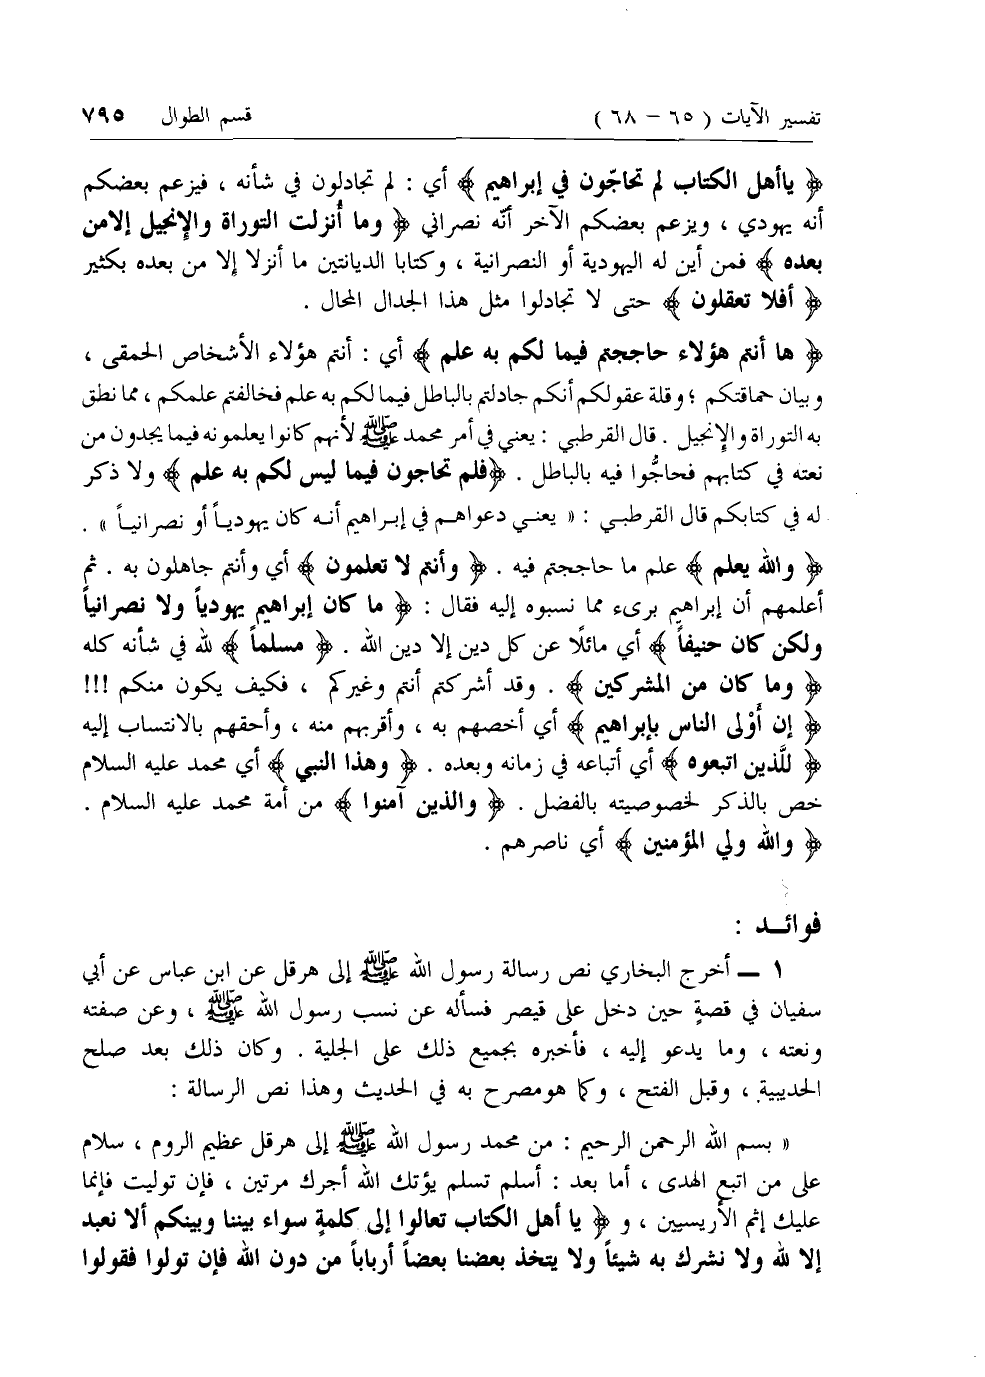 تفسير الآيات ( ٦٥ – ٦٨ ) قسم الطوال ٧٩٥
﴿ ياأهل الكتاب لم تحاجّون في إبراهيم ﴾ أي : لم تجادلون في شأنه ، فيزعم بعضكم
أنه يهودي ، ويزعم بعضكم الآخر أنّه نصراني ﴿ وما أُنزلت التوراة والإنجيل إلامن
بعده ﴾ فمن أين له اليهودية أو النصرانية ، وكتابا الديانتين ما أنزلا إلا من بعده بكثير
﴿ أفلا تعقلون ﴾ حتى لا تجادلوا مثل هذا الجدال المحال .
﴿ ها أنتم هؤلاء حاججتم فيما لكم به علم ﴾ أي : أنتم هؤلاء الأشخاص الحمقى ،
وبيان حماقتكم ؛ وقلة عقولكم أنكم جادلتم بالباطل فيما لكم به علم فخالفتم علمكم ، مما نطق
به التوراة والإنجيل . قال القرطبي : يعني في أمر محمد ﷺ لأنهم كانوا يعلمونه فيما يجدون من
نعته في كتابهم فحاجُّوا فيه بالباطل . ﴿فلم تحاجون فيما ليس لكم به علم ﴾ ولا ذكر
له في كتابكم قال القرطبي : « يعني دعواهم في إبراهيم أنه كان يهودياً أو نصرانياً » .
﴿ والله يعلم ﴾ علم ما حاججتم فيه . ﴿ وأنتم لا تعلمون ﴾ أي وأنتم جاهلون به . ثم
أعلمهم أن إبراهيم برىء مما نسبوه إليه فقال : ﴿ ما كان إبراهيم يهودياً ولا نصرانياً
ولكن كان حنيفاً ﴾ أي مائلًا عن كل دين إلا دين الله . ﴿ مسلماً ﴾ لله في شأنه كله
﴿ وما كان من المشركين ﴾ . وقد أشركتم أنتم وغيركم ، فكيف يكون منكم !!!
﴿ إن أَوْلى الناس بإبراهيم ﴾ أي أخصهم به ، وأقربهم منه ، وأحقهم بالانتساب إليه
﴿ للَّذين اتبعوه ﴾ أي أتباعه في زمانه وبعده . ﴿ وهذا النبي ﴾ أي محمد عليه السلام
خص بالذكر لخصوصيته بالفضل . ﴿ والذين آمنوا ﴾ من أمة محمد عليه السلام .
﴿ والله ولي المؤمنين ﴾ أي ناصرهم .
فوائـد :
١ – أخرج البخاري نص رسالة رسول الله ﷺ إلى هرقل عن ابن عباس عن أبي
سفيان في قصةٍ حين دخل على قيصر فسأله عن نسب رسول الله ﷺ ، وعن صفته
ونعته ، وما يدعو إليه ، فأخبره بجميع ذلك على الجلية . وكان ذلك بعد صلح
الحديبية ، وقبل الفتح ، وكما هومصرح به في الحديث وهذا نص الرسالة :
« بسم الله الرحمن الرحيم : من محمد رسول الله ﷺ إلى هرقل عظيم الروم ، سلام
على من اتبع الهدى ، أما بعد : أسلم تسلم يؤتك الله أجرك مرتين ، فإن توليت فإنما
عليك إثم الأريسيين ، و ﴿ يا أهل الكتاب تعالوا إلى كلمةٍ سواء بيننا وبينكم ألا نعبد
إلا لله ولا نشرك به شيئاً ولا يتخذ بعضنا بعضاً أرباباً من دون الله فإن تولوا فقولوا